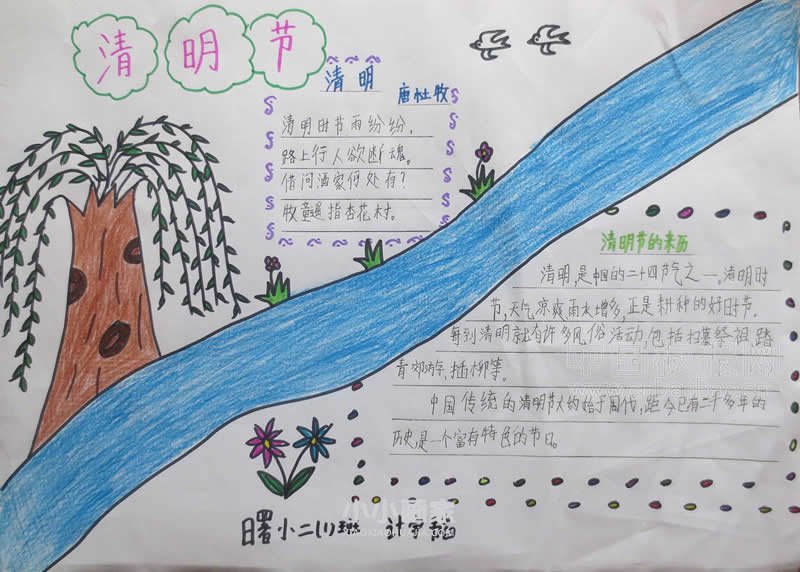 清明节
清明
唐杜牧
清明时节雨纷纷，
路上行人欲断魂。
借问酒家何处有？
牧童遥指杏花村。
清明节的来历
清明，是中国的二十四节气之一。清明时
节，天气凉爽雨水增多，正是耕种的好日节。
每到清明就有许多风俗活动，包括扫墓祭祖，踏
青郊游，插柳等。
中国传统的清明节大约始于周代，距今已有二千多年的
历史，是一个富有特色的节日。
曙小二(1)班
小小画家
XIAOXIAOHUAJIA.COM